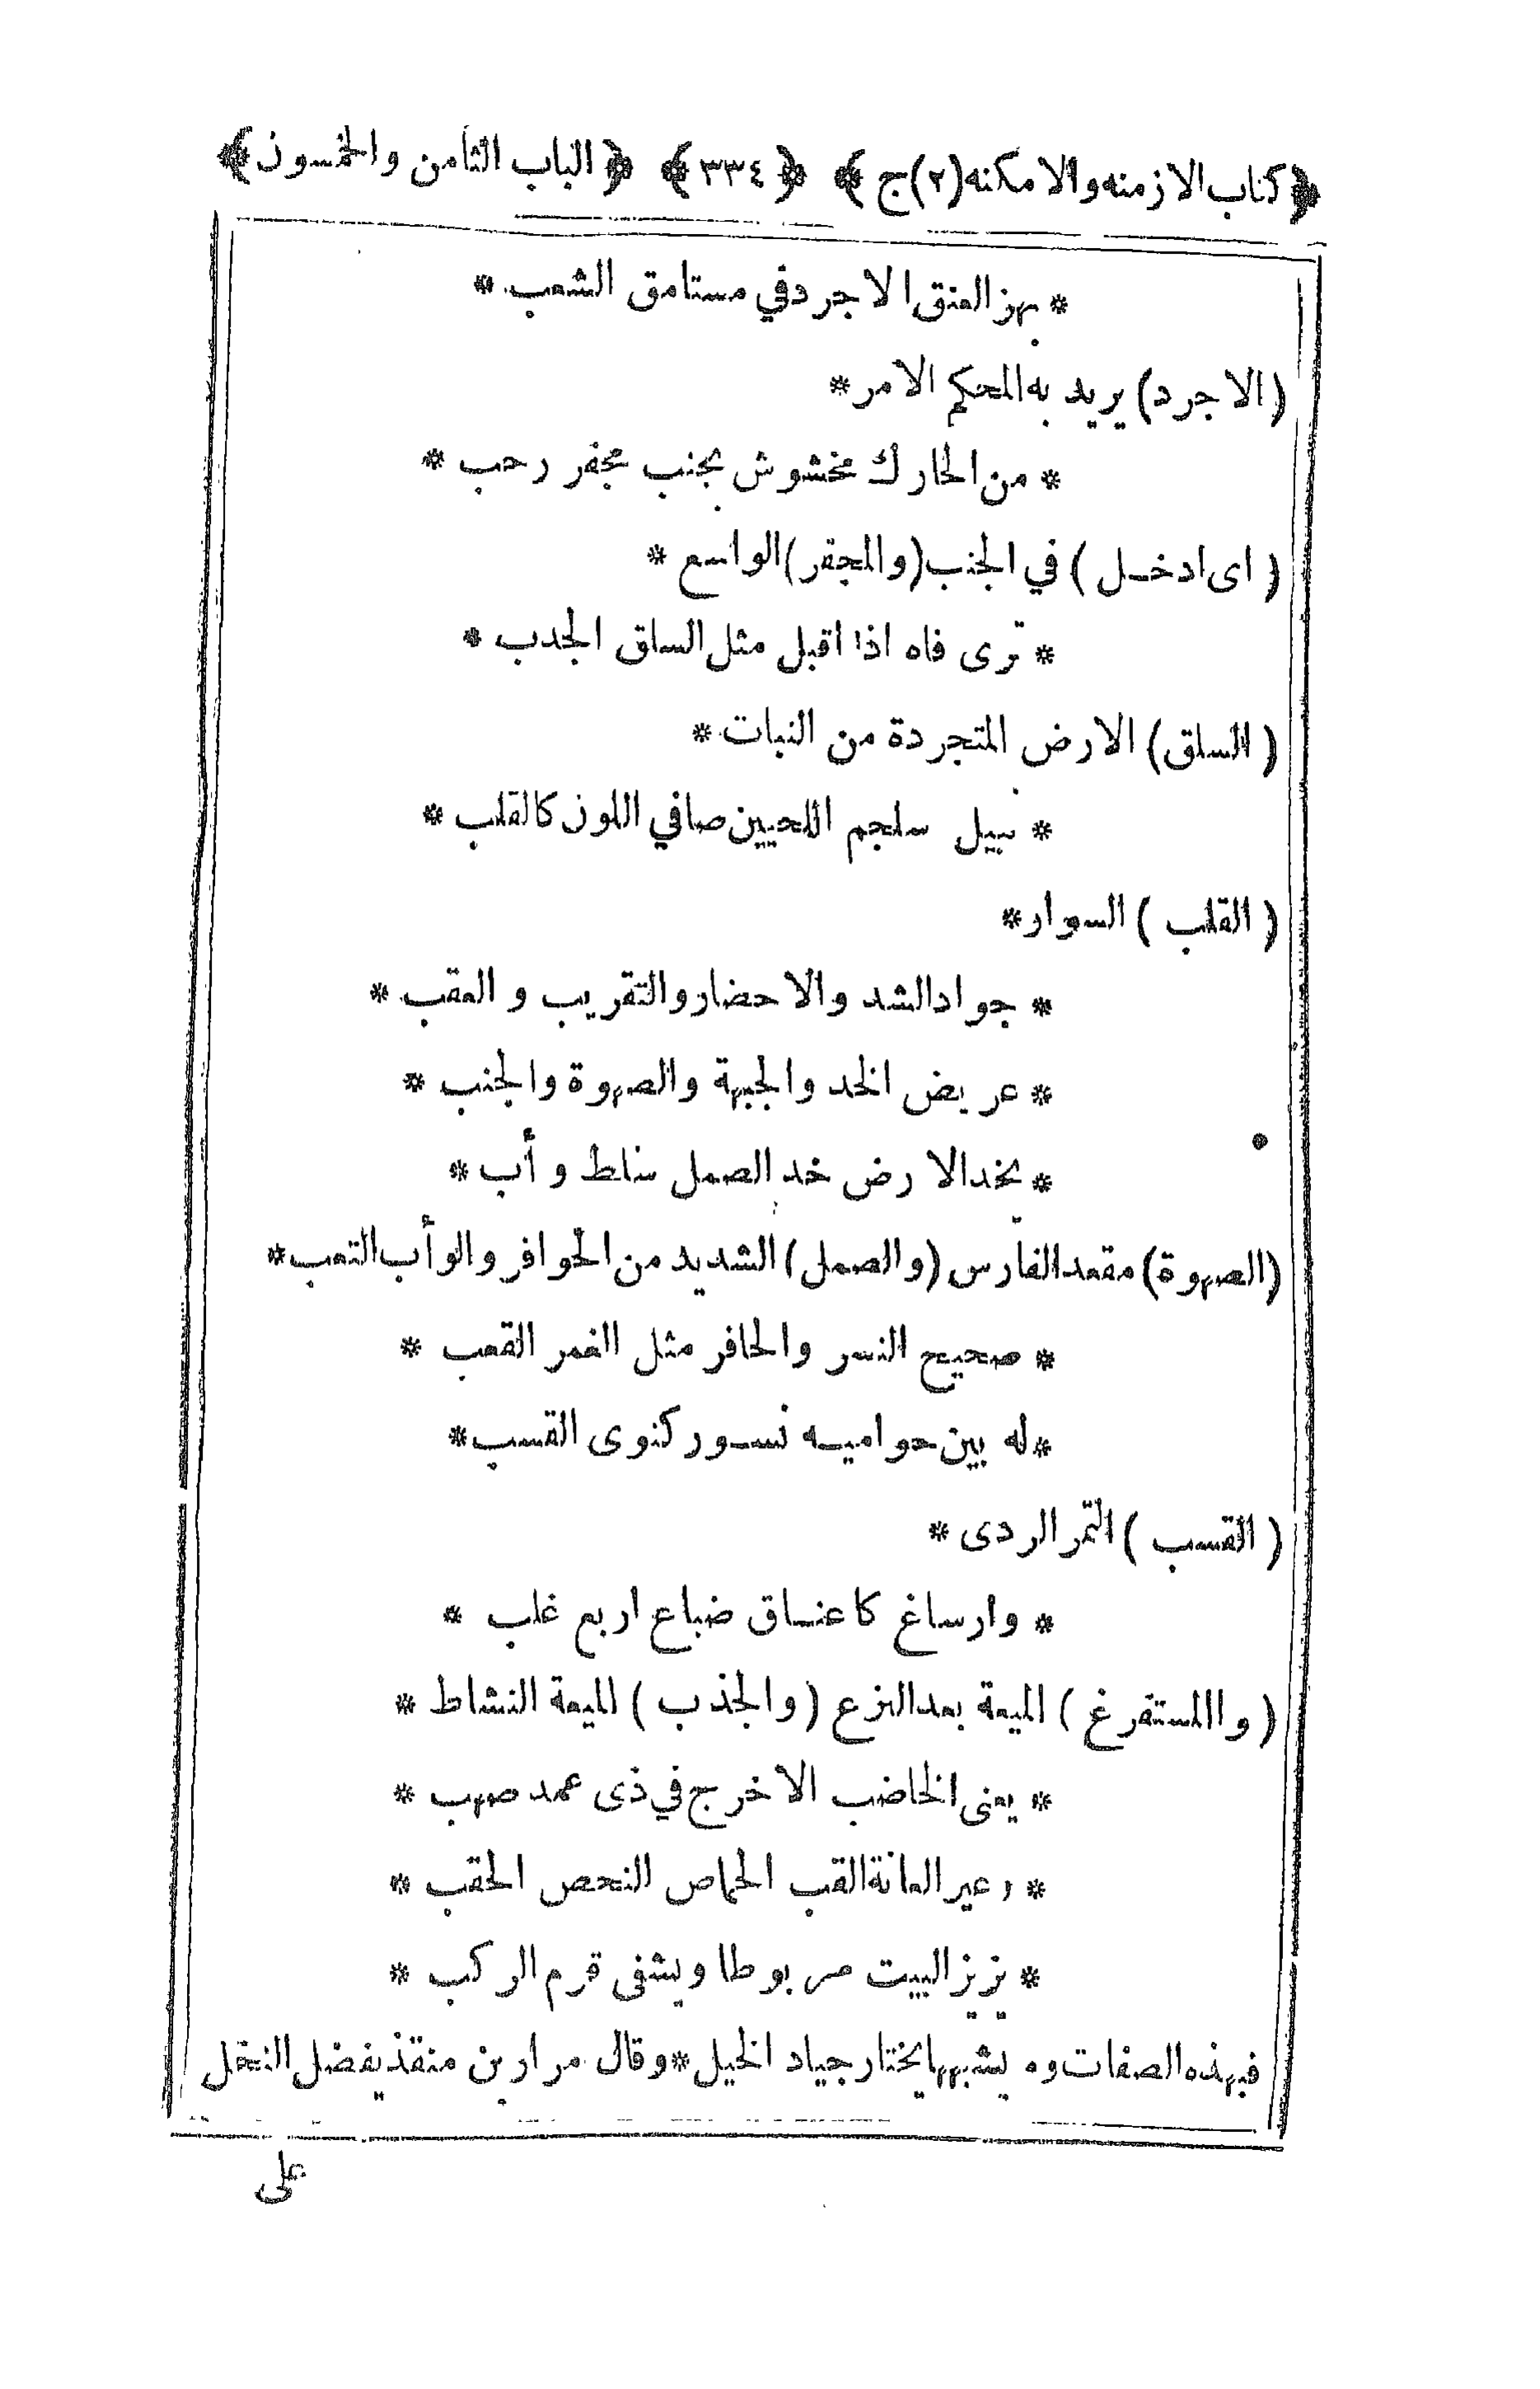 ﴿ كتاب الازمنه والامكنه (٢) ج ﴾ ﴿ ٣٣٤ ﴾ ﴿ الباب الثامن والخمسون ﴾
* يهز العنق الاجرد في مستامق الشعب *
( الاجرد ) يريد به المحكم الامر *
* من الحارك مخشوش بجنب مجفر رحب *
( اى ادخل ) في الجنب ( والمجفر ) الواسع *
* ترى فاه اذا اقبل مثل السلق الجدب *
( السلق ) الارض المتجردة من النبات *
* نبيل سلجم اللحيين صافي اللون كالقلب *
( القلب ) السوار *
* جواد الشد والاحضار والتقريب و العقب *
* عريض الخد والجبهة والصهوة والجنب *
* يخد الارض خد الصمل سلط وأب *
( الصهوة ) مقعد الفارس ( والصمل ) الشديد من الحوافر والوأب التعب *
* صحيح النسر والحافر مثل الغمر القعب *
* له بين حواميه نسور كنوى القسب *
( القسب ) التمر الردى *
* وارساغ كاعناق ضباع اربع غلب *
( والمستفرغ ) الميعة بعد النزع ( والجذب ) الميعة النشاط *
* يعنى الخاضب الاخرج في ذى عمد صهب *
* وعير العانة القب الخماص النحص الحقب *
* يزيز البيت مربوطا ويشفى قرم الركب *
فبهذه الصفات وما يشبهها يختار جياد الخيل * وقال مرار بن منقذ يفضل النخل
على